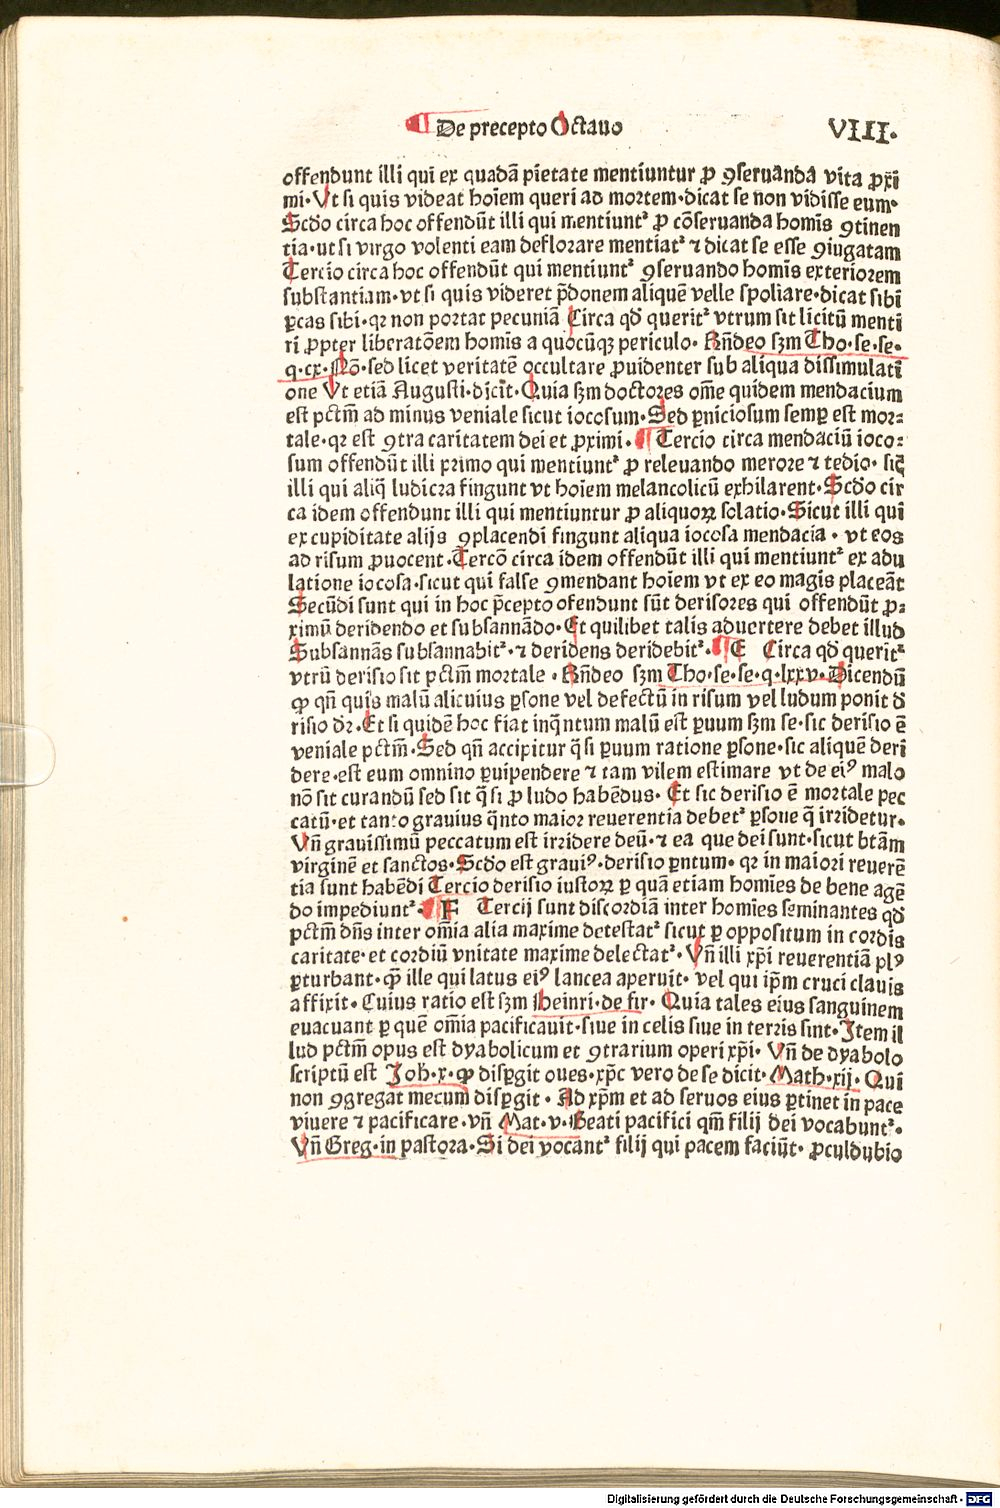 De precepto Octauo VIII.
offendunt illi qui ex quadā pietate mentiuntur ꝓ ꝯseruanda vita ꝓxi
mi. Vt si quis videat hoīem queri ad mortem. dicat se non vidisse eum.
Scd̄o circa hoc offendūt illi qui mentiuntᷣ ꝓ cōseruanda homīs ꝯtinen
tia. ut si virgo volenti eam deflorare mentiatᷣ ⁊ dicat se esse ꝯiugatam
Tercio circa hoc offendūt qui mentiuntᷣ ꝯseruando homīs exteriorem
substantiam. vt si quis videret p̄donem aliquē velle spoliare. dicat sibi
ꝑcas sibi. qꝛ non portat pecuniā Circa qd̄ queritᷣ vtrum sit licitū menti
ri ꝓpter liberatōem homīs a quocūqꝫ periculo. Rn̄deo sꝫm Tho. se. se.
q. cx. Nō. sed licet veritatē occultare ꝓuidenter sub aliqua dissimulati
one Vt etiā Augusti. dicit. Quia sꝫm doctores om̄e quidem mendacium
est pctm̄ ad minus veniale sicut iocosum. Sed ꝑniciosum semꝑ est mor⸗
tale. qꝛ est ꝯtra caritatem dei et ꝓximi. ¶ Tercio circa mendaciū ioco⸗
sum offendūt illi primo qui mentiuntᷣ ꝓ releuando merore ⁊ tedio. sic̄
illi qui aliq̄ ludicra fingunt vt hoīem melancolicū exhilarent. Scd̄o cir
ca idem offendunt illi qui mentiuntur ꝓ aliquoꝝ solatio. Sicut illi qui
ex cupiditate alijs ꝯplacendi fingunt aliqua iocosa mendacia . vt eos
ad risum ꝓuocent. Tercō circa idem offendūt illi qui mentiuntᷣ ex adu
latione iocosa. sicut qui false ꝯmendant hoīem vt ex eo magis placeāt
Secūdi sunt qui in hoc p̄cepto ofendunt sūt derisores qui offendūt ꝓ⸗
ximū deridendo et subsannādo. Et quilibet talis aduertere debet illud
Subsannās subsannabitᷣ. ⁊ deridens deridebitᷣ. ¶ E Circa qd̄ queritᷣ
vtrū derisio sit pctm̄ mortale . Rn̄deo sꝫm Tho. se. se. q. lxxv. Dicendū
ꝙ qn̄ quis malū alicuius ꝑsone vel defectū in risum vel ludum ponit d̄
risio dꝛ. Et si quidē hoc fiat inq̄ntum malū est ꝑuum sꝫm se. sic derisio ē
veniale pctm̄. Sed qn̄ accipitur q̄si ꝑuum ratione ꝑsone. sic aliquē deri
dere. est eum omnino ꝑuipendere ⁊ tam vilem estimare vt de eiꝰ malo
nō sit curandū sed sit q̄si ꝓ ludo habēdus. Et sic derisio ē mortale pec
catū. et tanto grauius q̄nto maior reuerentia debetᷣ ꝑsone q̄ irridetur.
Vn̄ grauissimū peccatum est irridere deū. ⁊ ea que dei sunt. sicut btām
virginē et sanctos. Scd̄o est grauiꝰ. derisio ꝑntum. qꝛ in maiori reuerē
tia sunt habēdi Tercio derisio iustoꝝ ꝑ quā etiam homīes de bene agē
do impediuntᷣ. ¶ F Tercij sunt discordiā inter homīes seminantes qd̄
pctm̄ dn̄s inter om̄ia alia maxime detestatᷣ sicut ꝑ oppositum in cordis
caritate. et cordiū vnitate maxime delectatᷣ. Vn̄ illi xp̄i reuerentiā plꝰ
ꝑturbant. ꝙ̄ ille qui latus eiꝰ lancea aperuit. vel qui ip̄m cruci clauis
affixit. Cuius ratio est sꝫm Heinri. de fir. Quia tales eius sanguinem
euacuant ꝑ quē om̄ia pacificauit. siue in celis siue in terris sint. Item il
lud pctm̄ opus est dyabolicum et ꝯtrarium operi xp̄i. Vn̄ de dyabolo
scriptū est Joh. x. ꝙ disꝑgit oues. xp̄c vero de se dicit. Math. xij. Qui
non ꝯgregat mecum disꝑgit . Ad xp̄m et ad seruos eius ꝑtinet in pace
viuere ⁊ pacificare. vn̄ Mat. v. Beati pacifici qm̄ filij dei vocabuntᷣ.
Vn̄ Greg. in pastora. Si dei vocantᷣ filij qui pacem faciūt. ꝓculdubio
Digitalisierung gefördert durch die Deutsche Forschungsgemeinschaft - DFG